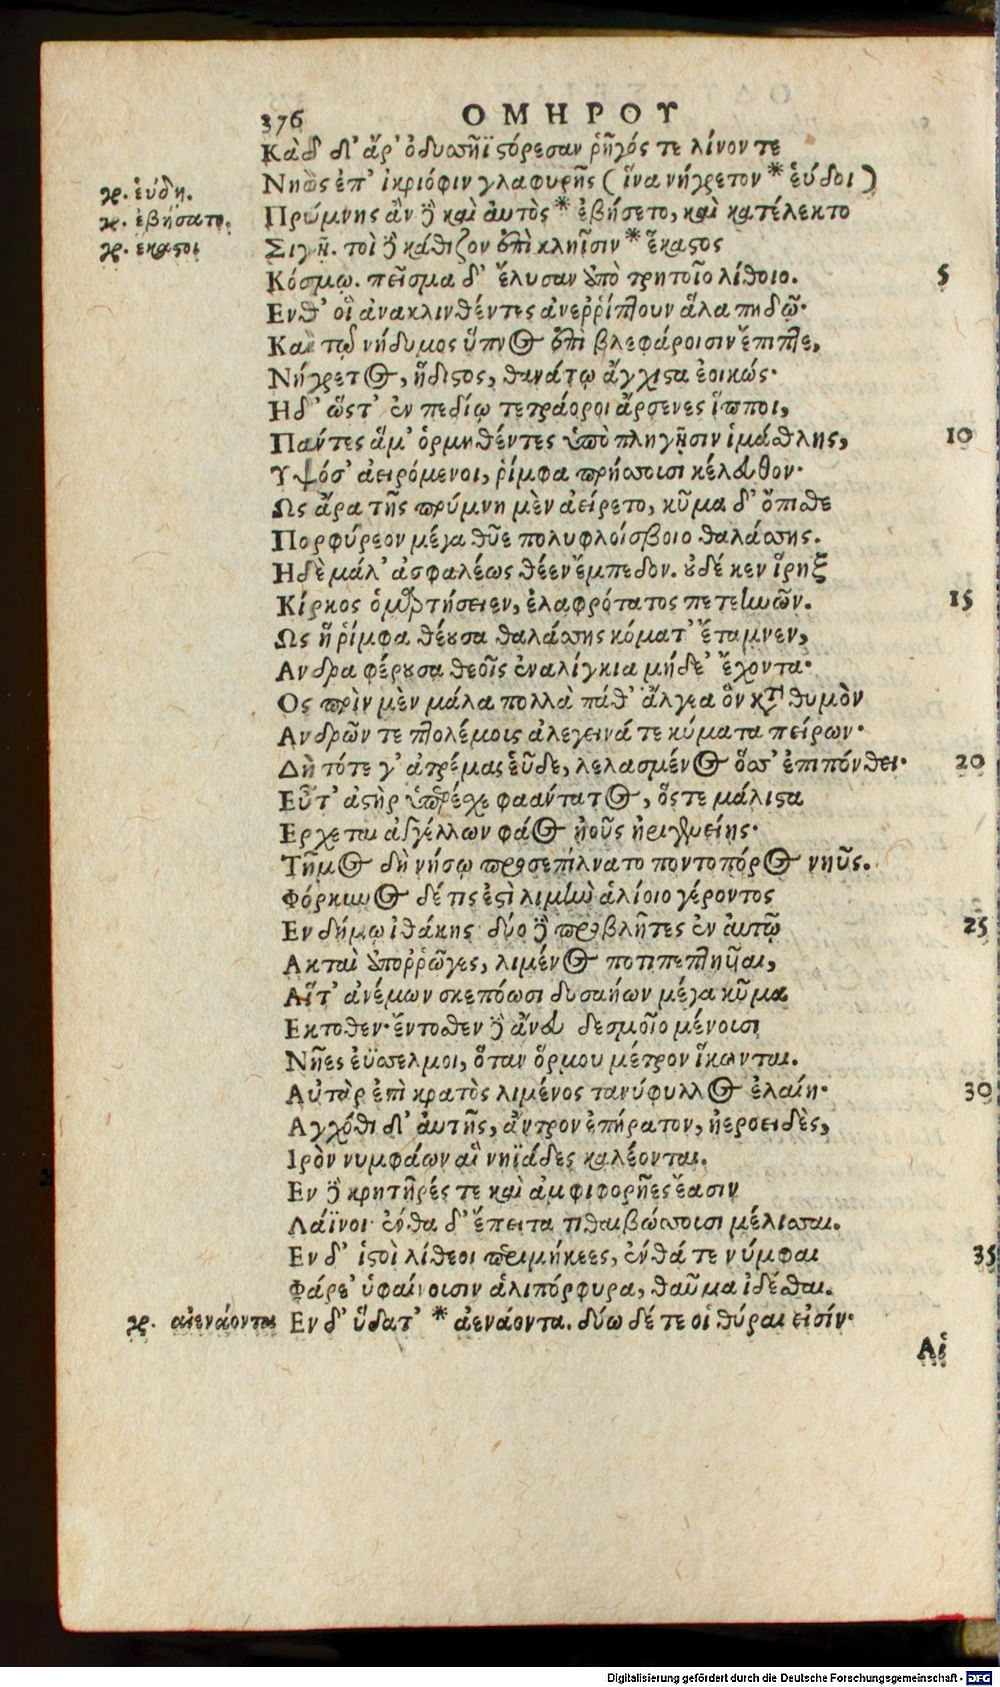 376 ΟΜΗΡΟΥ
Κὰδ δ' ἄρ' ὀδυσσῆϊ στόρεσαν ῥῆγός τε λίνον τε
γρ. εὕδῃ. Νηὸς ἐπ' ἰκριόφιν γλαφυρῆς (ἵνα νήγρετον * εὕδοι)
γρ. ἐβήσατο. Πρύμνης ἂν δὲ καὶ αὐτὸς * ἐβήσετο, καὶ κατέλεκτο
γρ. ἕκαστοι Σιγῇ. τοὶ δὲ κάθιζον ἐπὶ κληῗσιν * ἕκαστος
Κόσμῳ. πεῖσμα δ' ἔλυσαν ἀπὸ τρητοῖο λίθοιο. 5
Ενθ' οἳ ἀνακλινθέντες ἀνεῤῥίπτουν ἅλα πηδῷ·
Καὶ τῷ νήδυμος ὕπνος ἐπὶ βλεφάροισιν ἔπιπτε,
Νήγρετος, ἥδιστος, θανάτῳ ἄγχιστα ἐοικώς·
Ηδ' ὥστ' ἐν πεδίῳ τετράοροι ἄρσενες ἵπποι,
Πάντες ἅμ' ὁρμηθέντες ὑπὸ πληγῇσιν ἱμάσθλης, 10
Υψόσ' ἀειρόμενοι, ῥίμφα πρήσσουσι κέλευθον·
Ως ἄρα τῆς πρύμνη μὲν ἀείρετο, κῦμα δ' ὄπισθε
Πορφύρεον μέγα θῦε πολυφλοίσβοιο θαλάσσης.
Ηδὲ μάλ' ἀσφαλέως θέεν ἔμπεδον. οὐδέ κεν ἴρηξ
Κίρκος ὁμαρτήσειεν, ἐλαφρότατος πετεηνῶν. 15
Ως ἣ ῥίμφα θέουσα θαλάσσης κύματ' ἔταμνεν,
Ανδρα φέρουσα θεοῖς ἐναλίγκια μήδε' ἔχοντα·
Ος πρὶν μὲν μάλα πολλὰ πάθ' ἄλγεα ὃν κατὰ θυμὸν
Ανδρῶν τε πτολέμοις ἀλεγεινά τε κύματα πείρων·
Δὴ τότε γ' ἀτρέμας εὗδε, λελασμένος ὅσσ' ἐπιπόνθει· 20
Εὖτ' ἀστὴρ ὑπερέχε φαάντατος, ὅστε μάλιστα
Ερχεται ἀγγέλλων φάος ἠοῦς ἠριγενείης·
Τῆμος δὴ νήσῳ προσεπίλνατο ποντοπόρος νηῦς.
Φόρκυνος δέ τις ἐστὶ λιμὴν ἁλίοιο γέροντος
Εν δήμῳ ἰθάκης· δύο δὲ προβλῆτες ἐν αὐτῷ 25
Ακταὶ ἀποῤῥῶγες, λιμένος ποτιπεπτηυῖαι,
Αἵτ' ἀνέμων σκεπόωσι δυσαήων μέγα κῦμα
Εκτοθεν· ἔντοσθεν δὲ ἄνευ δεσμοῖο μένουσι
Νῆες ἐΰσσελμοι, ὅταν ὅρμου μέτρον ἵκωνται.
Αὐτὰρ ἐπὶ κρατὸς λιμένος τανύφυλλος ἐλαίη· 30
Αγχόθι δ' αὐτῆς, ἄντρον ἐπήρατον, ἠεροειδὲς,
Ιρὸν νυμφάων αἳ νηϊάδες καλέονται.
Εν δὲ κρητῆρές τε καὶ ἀμφιφορῆες ἔασιν
Λάϊνοι· ἔνθα δ' ἔπειτα τιθαιβώσσουσι μέλισσαι.
Εν δ' ἱστοὶ λίθεοι περιμήκεες, ἔνθά τε νύμφαι 35
Φάρε' ὑφαίνουσιν ἁλιπόρφυρα, θαῦμα ἰδέσθαι.
γρ. αἰενάοντα Εν δ' ὕδατ' * ἀενάοντα. δύω δέ τε οἱ θύραι εἰσίν·
Αἱ
Digitalisierung gefördert durch die Deutsche Forschungsgemeinschaft - DFG